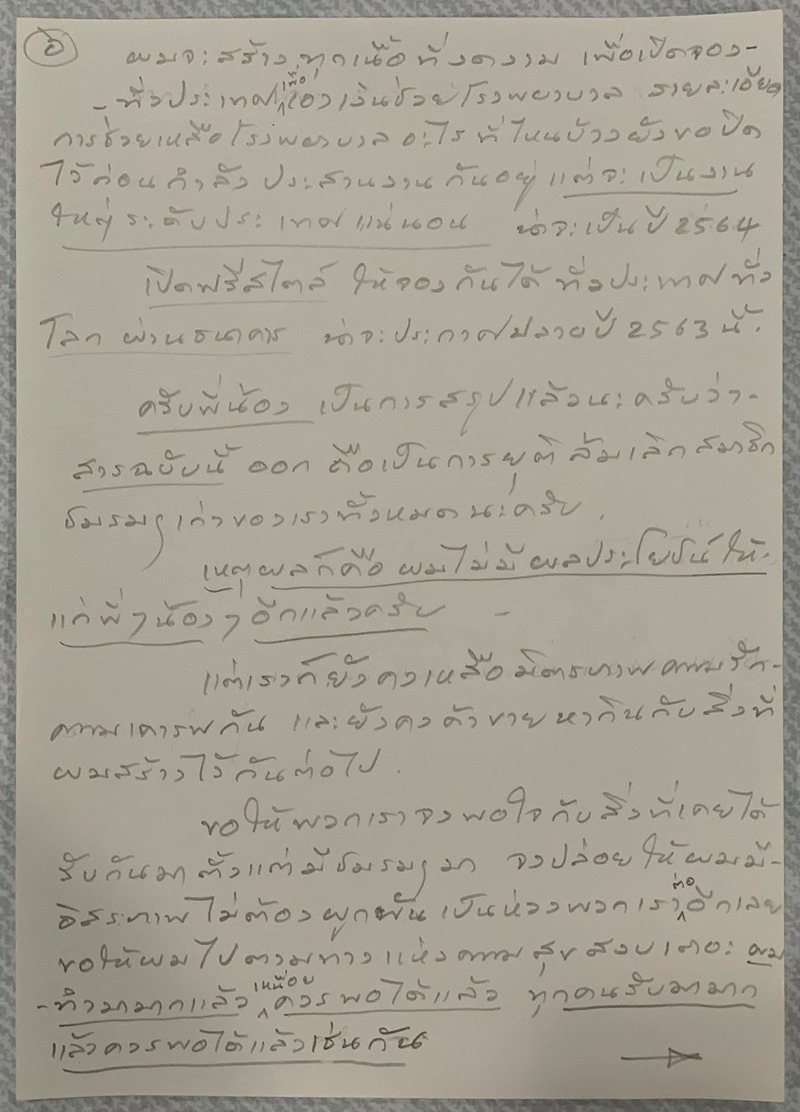 ๖
ผมจะสร้างทุกเนื้อที่งดงาม เพื่อเปิดจอง-
-ทั่วประเทศเพื่อเอาเงินช่วยโรงพยาบาล รายละเอียด
การช่วยเหลือโรงพยาบาล อะไร ที่ไหนบ้างยังขอปิด
ไว้ก่อน กำลังประสานงานกันอยู่ แต่จะเป็นงาน
ใหญ่ระดับประเทศแน่นอน น่าจะเป็นปี 2564
เปิดฟรีสไตล์ ให้จองกันได้ทั่วประเทศทั่ว
โลก ผ่านธนาคาร น่าจะประกาศปลายปี 2563 นี้.
ครับพี่น้อง เป็นการสรุปแล้วนะครับว่า-
สารฉบับนี้ ออก คือเป็นการยุติ ล้มเลิกสมาชิก
ชมรมฯ เก่าของเราทั้งหมดนะครับ.
เหตุผลก็คือ ผมไม่มีผลประโยชน์ให้-
แก่พี่ๆน้องๆ อีกแล้วครับ -
แต่เราก็ยังคงเหลือมิตรภาพความรัก-
ความเคารพกัน และยังคงค้าขายหากินกับสิ่งที่
ผมสร้างไว้กันต่อไป.
ขอให้พวกเราจงพอใจกับสิ่งที่เคยได้
รับกันมาตั้งแต่มีชมรมฯมา จงปล่อยให้ผมมี-
อิสระภาพ ไม่ต้องผูกพันเป็นห่วงพวกเราต่ออีกเลย
ขอให้ผมไปตามทางแห่งความสุขสงบเถอะ ผม
-ทำมามากแล้วเหนื่อยควรพอได้แล้ว ทุกคนรับมามาก
แล้วควรพอได้แล้วเช่นกัน